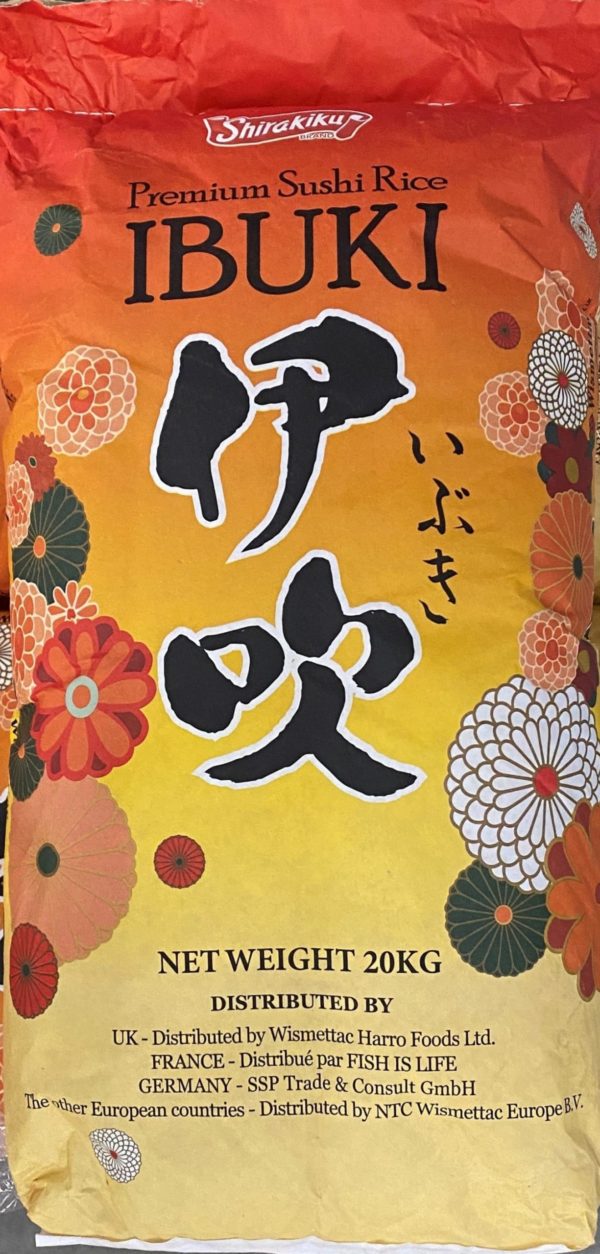 Shirakiku
BRAND
Premium Sushi Rice
IBUKI
伊吹
いぶき
NET WEIGHT 20KG
DISTRIBUTED BY
UK - Distributed by Wismettac Harro Foods Ltd.
FRANCE - Distribué par FISH IS LIFE
GERMANY - SSP Trade & Consult GmbH
The other European countries - Distributed by NTC Wismettac Europe B.V.